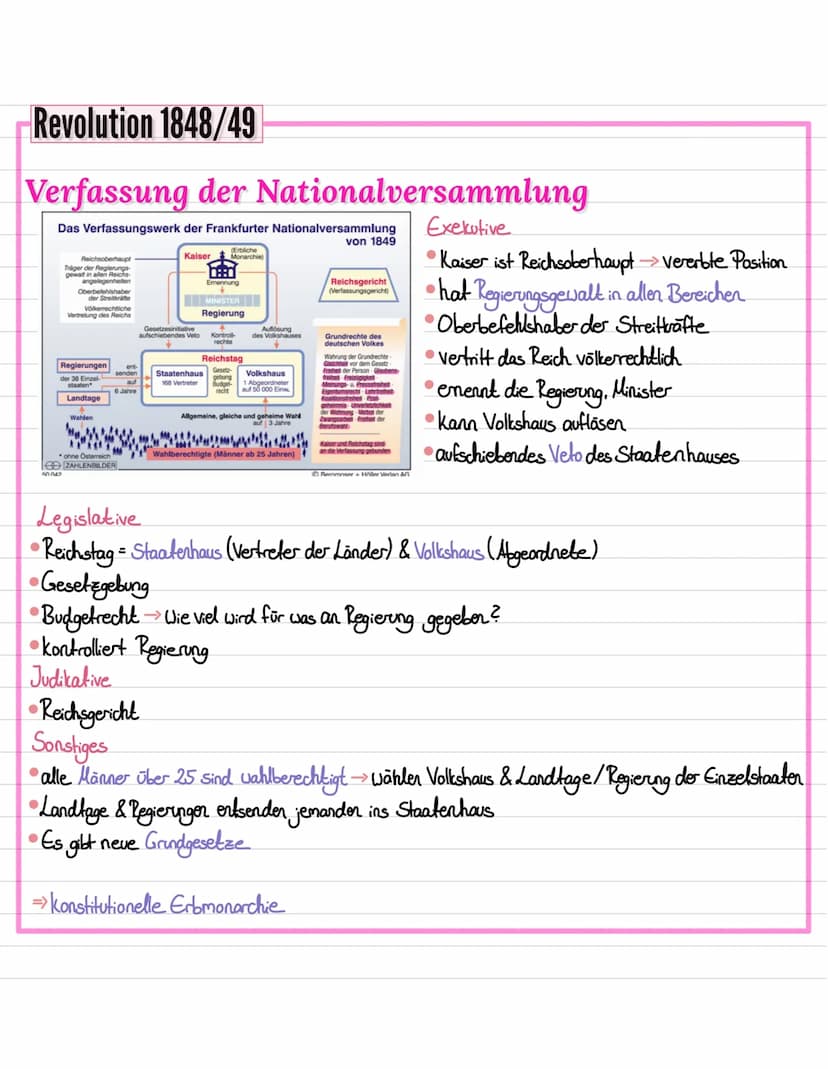 Revolution 1848/49
Verfassung der Nationalversammlung
Das Verfassungswerk der Frankfurter Nationalversammlung
von 1849
Reichsoberhaupt
Träger der Regierungs-
gewalt in allen Reichs-
angelegenheiten
Oberbefehlshaber
der Streitkräfte
Völkerrechtliche
Vertretung des Reichs
Kaiser
(Erbliche
Monarchie)
Ernennung
MINISTER
Regierung
Reichsgericht
(Verfassungsgericht)
Gesetzesinitiative
aufschiebendes Veto
Kontroll-
rechte
Auflösung
des Volkshauses
Reichstag
Staatenhaus
168 Vertreter
Gesetz-
gebung
Budget-
recht
Volkshaus
1 Abgeordneter
auf 50 000 Einw.
Regierungen
der 38 Einzel-
staaten*
Landtage
ent-
senden
auf
6 Jahre
Wahlen
Allgemeine, gleiche und geheime Wahl
auf 3 Jahre
Wahlberechtigte (Männer ab 25 Jahren)
* ohne Österreich
ZAHLENBILDER
© Bergmoser + Höller Verlag AG
Grundrechte des
deutschen Volkes
Wahrung der Grundrechte ·
Gleichheit vor dem Gesetz ·
Freiheit der Person · Glaubens-
freiheit · Freizügigkeit ·
Meinungs- u. Pressefreiheit ·
Eigentumsrecht · Lehrfreiheit ·
Koalitionsfreiheit · Post-
geheimnis · Unverletzlichkeit
der Wohnung · Verbot der
Zwangsarbeit · Freiheit der
Berufswahl
Kaiser und Reichstag sind
an die Verfassung gebunden
Exekutive
• Kaiser ist Reichsoberhaupt → vererbte Position
• hat Regierungsgewalt in allen Bereichen
• Oberbefehlshaber der Streitkräfte
• vertritt das Reich völkerrechtlich
• ernennt die Regierung, Minister
• kann Volkshaus auflösen
• aufschiebendes Veto des Staatenhauses
Legislative
• Reichstag = Staatenhaus (Vertreter der Länder) & Volkshaus (Abgeordnete)
• Gesetzgebung
• Budgetrecht → Wie viel wird für was an Regierung gegeben?
• kontrolliert Regierung
Judikative
• Reichsgericht
Sonstiges
• alle Männer über 25 sind wahlberechtigt → wählen Volkshaus & Landtage/Regierung der Einzelstaaten
• Landtage & Regierungen entsenden jemanden ins Staatenhaus
• Es gibt neue Grundgesetze
⇒ konstitutionelle Erbmonarchie